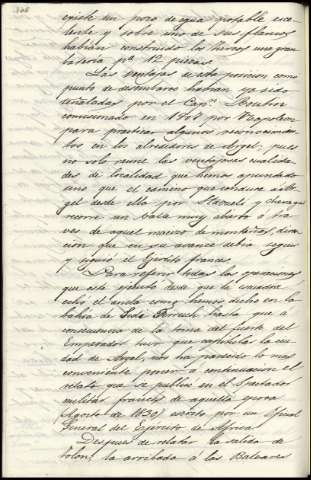 existe un pozo de agua potable exce-
lente y sobre uno de sus flancos
habian construido los turcos una gran
bateria pª 12 piezas.
Las ventajas de esta posicion como
punto de desembarco habian ya sido
señaladas por el Capⁿ Boutin
comisionado en 1808 por Napoleon
para practicar algunos reconocimien-
tos en los alrededores de Argel, pues
no solo reune las ventajosas cualida-
des de localidad que hemos apuntado
sino que el camino que conduce a Ar-
gel desde ella por Staoueli y
recorre un valle muy abierto á tra-
ves de aquel macizo de montañas, direc-
cion que en su avance debia seguir
y siguió el Ejército frances.
Para referir todas las operaciones
que este ejecutó desde que la escuadra
echó el ancla como hemos dicho en la
bahia de Sidi Ferruch, hasta que á
consecuencia de la toma del fuerte del
Emperador tuvo que capitular la ciu-
dad de Argel, nos ha parecido lo mas
conveniente poner á continuacion el
relato que se publicó en el Spectador
militar francés de aquella epoca
(Agosto de 1830) escrito por un Oficial
General del Ejercito de Africa.
Despues de relatar la salida de
Tolon, la arribada á las Baleares